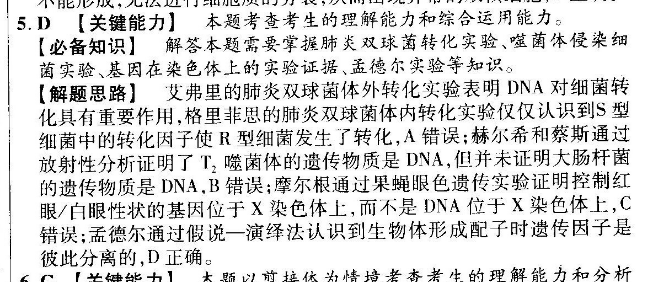 不能形成,无法进行细胞质的分裂,从而出现异常的
5. D 【关键能力】 本题考查考生的理解能力和综合运用能力。
【必备知识】 解答本题需要掌握肺炎双球菌转化实验、噬菌体侵染细
菌实验、基因在染色体上的实验证据、孟德尔实验等知识。
【解题思路】 艾弗里的肺炎双球菌体外转化实验表明 DNA 对细菌转
化具有重要作用,格里菲思的肺炎双球菌体内转化实验仅仅认识到S 型
细菌中的转化因子使 R 型细菌发生了转化,A 错误;赫尔希和蔡斯通过
放射性分析证明了 T₂ 噬菌体的遗传物质是 DNA,但并未证明大肠杆菌
的遗传物质是 DNA,B 错误;摩尔根通过果蝇眼色遗传实验证明控制红
眼/白眼性状的基因位于 X 染色体上,而不是 DNA 位于 X 染色体上,C
错误;孟德尔通过假说—演绎法认识到生物体形成配子时遗传因子是
彼此分离的,D 正确。
6. C 【关键能力】 本题以剪接体为情境考查考生的理解能力和分析